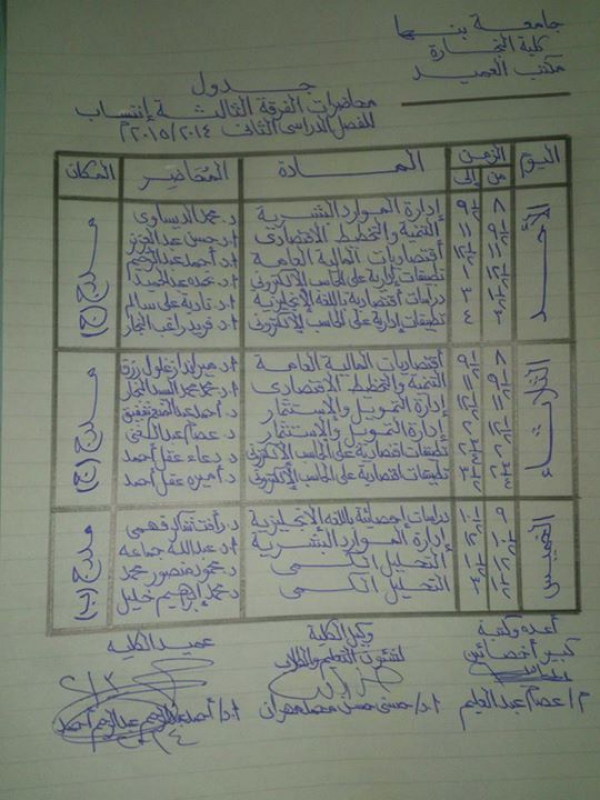 جامعة بنها
كلية التجارة
مكتب العميد
جدول
محاضرات الفرقة الثالثة إنتساب
للفصل الدراسى الثانى ٢٠١٥/٢٠١٤م
اليوم الزمن من إلى المادة المحاضر المكان
الأحد
٨ ٩½ إدارة الموارد البشرية د. محمد الديساوى
٩½ ١١ التنمية والتخطيط الاقتصادى أ.د حسن عبدالعزيز
١١ ١٢½ أقتصاديات المالية العامة أ.د أحمد عبدالرحيم
تطبيقات إدارية على الحاسب الإلكترونى
٣ دراسات أقتصادية باللغه الإنجليزية أ.د نادية على سالم
٣ ٤ تطبيقات إدارية على الحاسب الإلكترونى أ.د فريد راغب النجار
مدرج (ج)
الثلاثاء
٨ ٩½ أقتصاديات المالية العامة أ.د ميراندا زغلول رزق
٩½ ١١ التنمية والتخطيط الاقتصادى أ.د محمد محمد السيد النجار
١١ ١٢½ إدارة التمويل والإستثمار د. أحمد عبدالفتح شفيق
إدارة التمويل والإستثمار د. عصام عبدالغنى
تطبيقات اقتصادية على الحاسب الإلكترونى د. دعاء عقل أحمد
تطبيقات اقتصادية على الحاسب الإلكترونى د. أميره عقل أحمد
مدرج (ج)
الخميس
٩ ١٠½ دراسات إحصائية باللغه الإنجليزية د. رأفت شاكر فهمى
١٠½ ١٢ إدارة الموارد البشرية أ.د عبدالله جماعه
التحليل الكمى د. محمود منصور محمد
التحليل الكمى د. محمد إبراهيم خليل
مدرج (ب)
أعده وكتبه
كبير أخصائين
م/ عصام عبدالعليم
وكيل الكلية
لشئون التعليم والطلاب
أ.د/ حسنى حسن مهران
عميد الكليه
أ.د/ أحمد عبدالرحيم